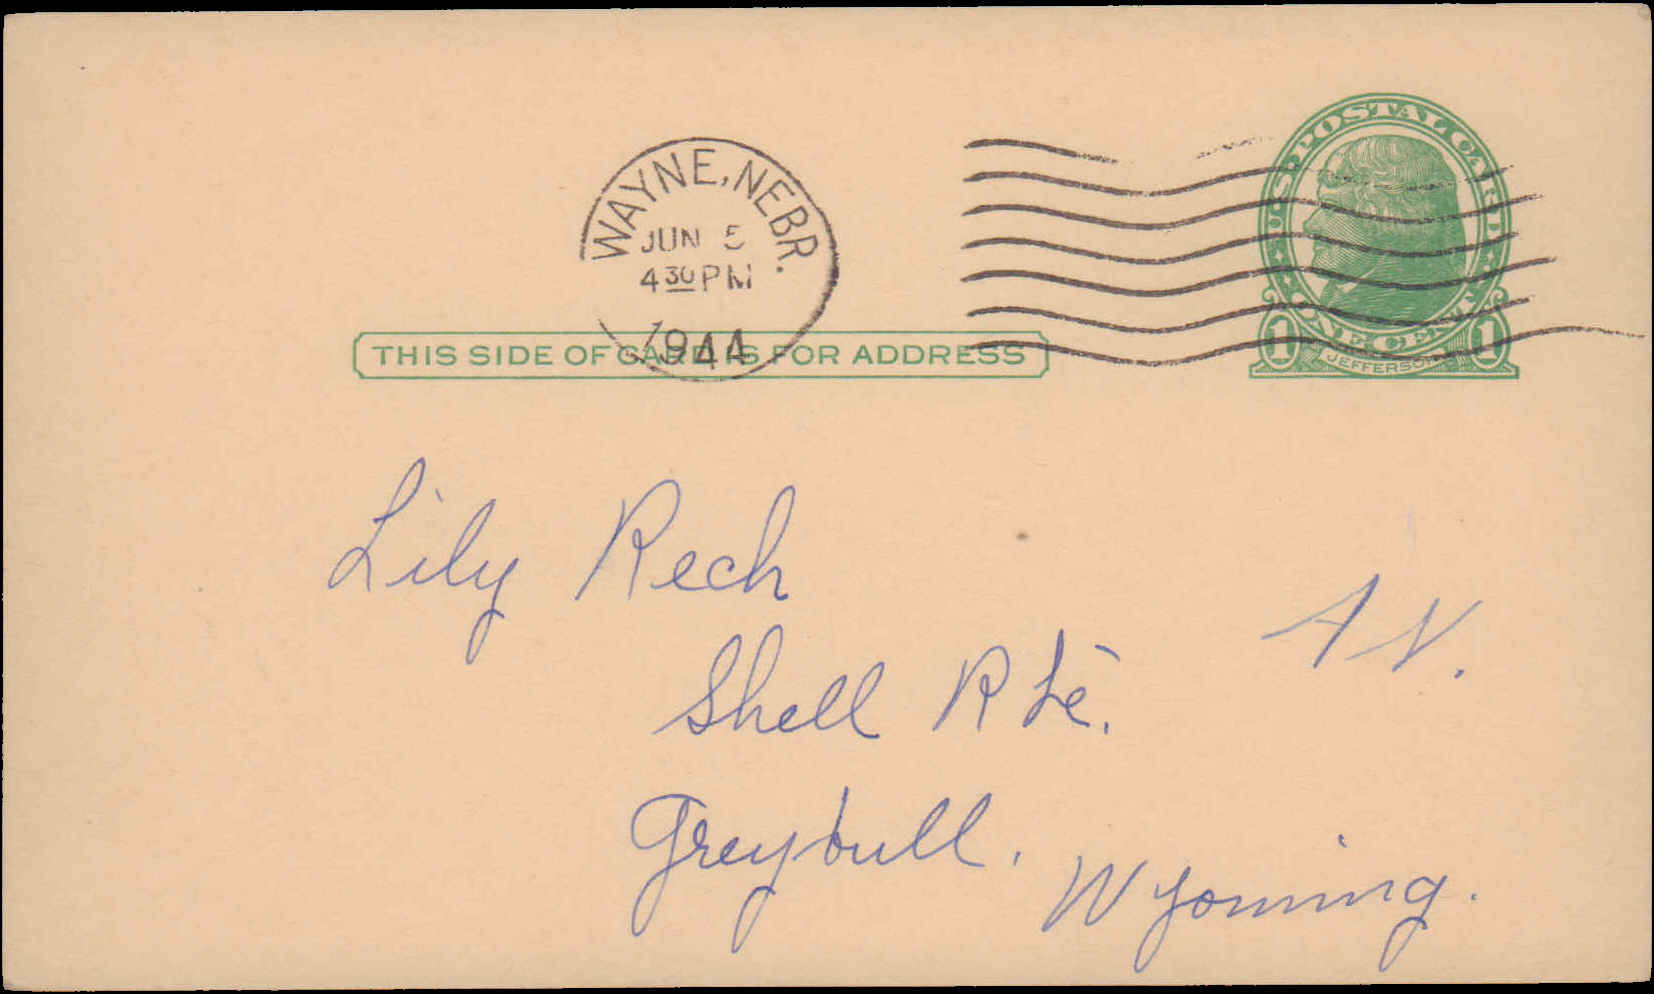 U.S. POSTAL CARD
WAYNE, NEBR.
JUN 5
4 30 PM
1944
ONE CENT
1 1
JEFFERSON
THIS SIDE OF CARD IS FOR ADDRESS
Lily Rech
A V.
Shell Rte.
Greybull.
Wyoming.